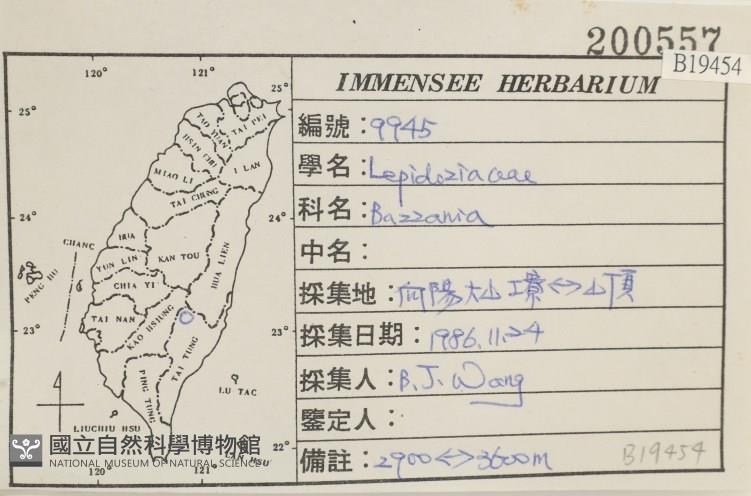 200557
B19454
IMMENSEE HERBARIUM
編號：9945
學名：Lepidoziaceae
科名：Bazzania
中名：
採集地：向陽大山
山頂
採集日期：1986.11.24
採集人：B.J. Wang
鑒定人：
備註：2900<->3600m
B19454
120°
121°
25°
25°
TAO YUAN
TAI PEI
HSIN CHU
I LAN
MIAO LI
TAI CHUNG
24°
24°
HUA
CHANG
YUN LIN
KAN TOU
HUA LIEN
PENG HU
CHIA YI
TAI NAN
KAO HSIUNG
23°
23°
TAI TUNG
PING TUNG
LU TAO
LIUCHIU HSU
LAN HSU
22°
120°
121°
國立自然科學博物館
NATIONAL MUSEUM OF NATURAL SCIENCE